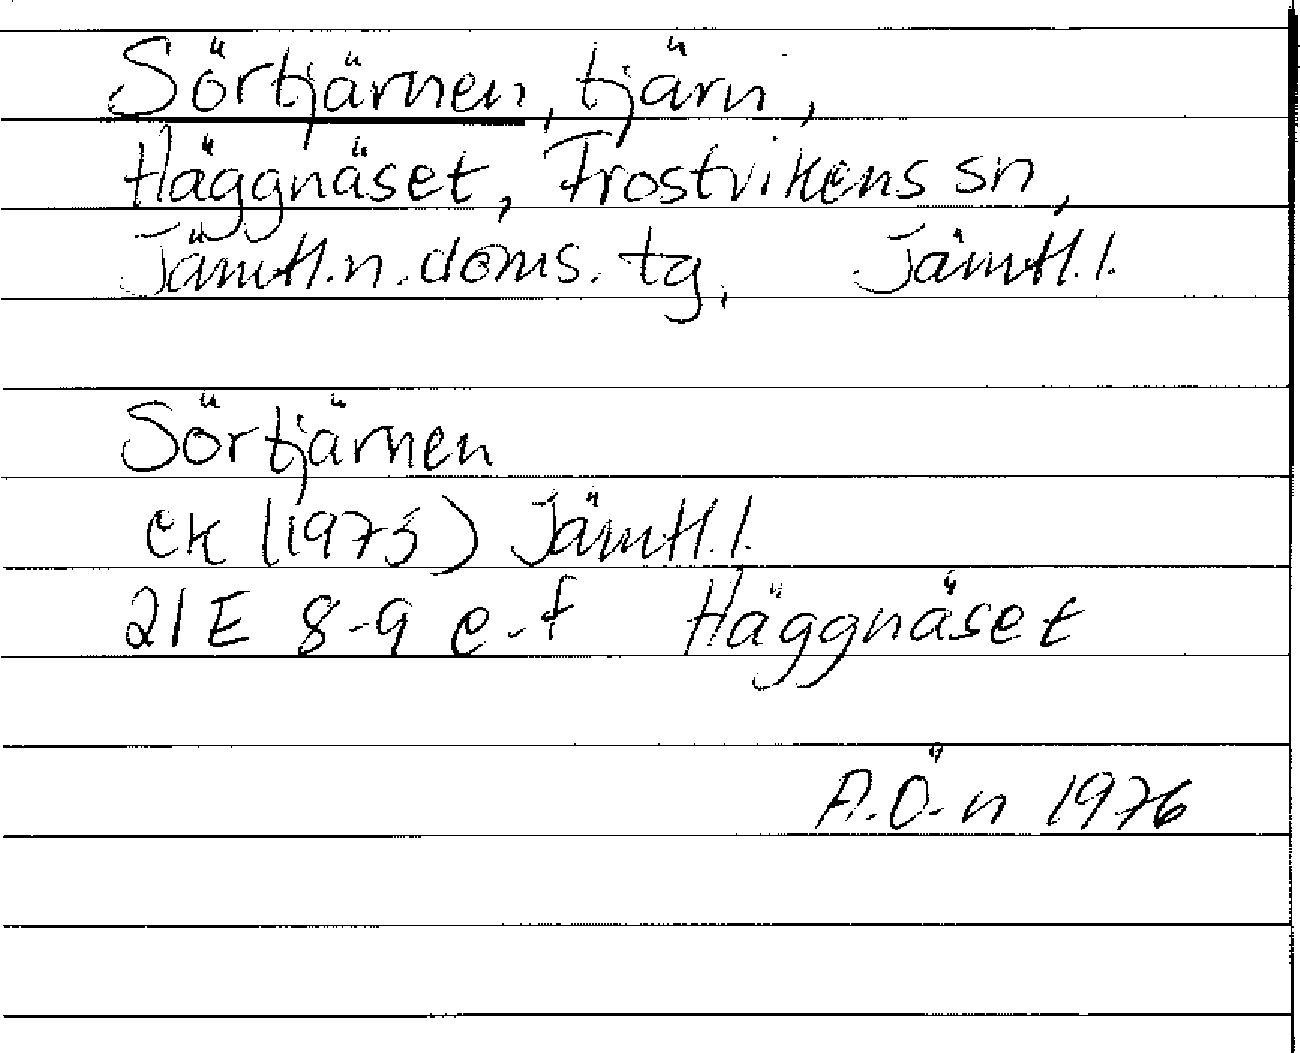 Sörtjärnen, tjärn,
Häggnäset, Frostvikens sn,
Jämtl.n.doms.tg, Jämtl.l.
Sörtjärnen
ek (1973) Jämtl.l.
21E 8-9 e-f Häggnäset
A.Ö-n 1976